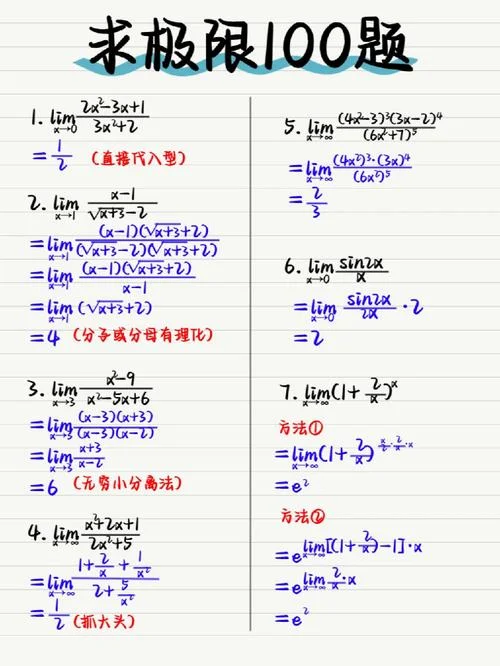 求极限100题
1. lim x→0 (2x²-3x+1)/(3x²+2)
= 1/2 (直接代入型)
2. lim x→1 (x-1)/(√x+3-2)
= lim x→1 (x-1)(√x+3+2)/(√x+3-2)(√x+3+2)
= lim x→1 (x-1)(√x+3+2)/(x-1)
= lim x→1 (√x+3+2)
= 4 (分子或分母有理化)
3. lim x→3 (x²-9)/(x²-5x+6)
= lim x→3 (x-3)(x+3)/(x-3)(x-2)
= lim x→3 (x+3)/(x-2)
= 6 (无穷小分离法)
4. lim x→∞ (x²+2x+1)/(2x²+5)
= lim x→∞ (1+2/x+1/x²)/(2+5/x²)
= 1/2 (抓大头)
5. lim x→∞ (4x²-3)³(3x-2)⁴/(6x²+7)⁵
= lim x→∞ (4x²)³·(3x)⁴/(6x²)⁵
= 2/3
6. lim x→0 sin2x/x
= lim x→0 sin2x/2x · 2
= 2
7. lim x→∞ (1+2/x)^x
方法①
= lim x→∞ (1+2/x)^(x/2 · 2/x · x)
= e²
方法②
= e^(lim x→∞ [(1+2/x)-1]·x)
= e^(lim x→∞ 2/x · x)
= e²